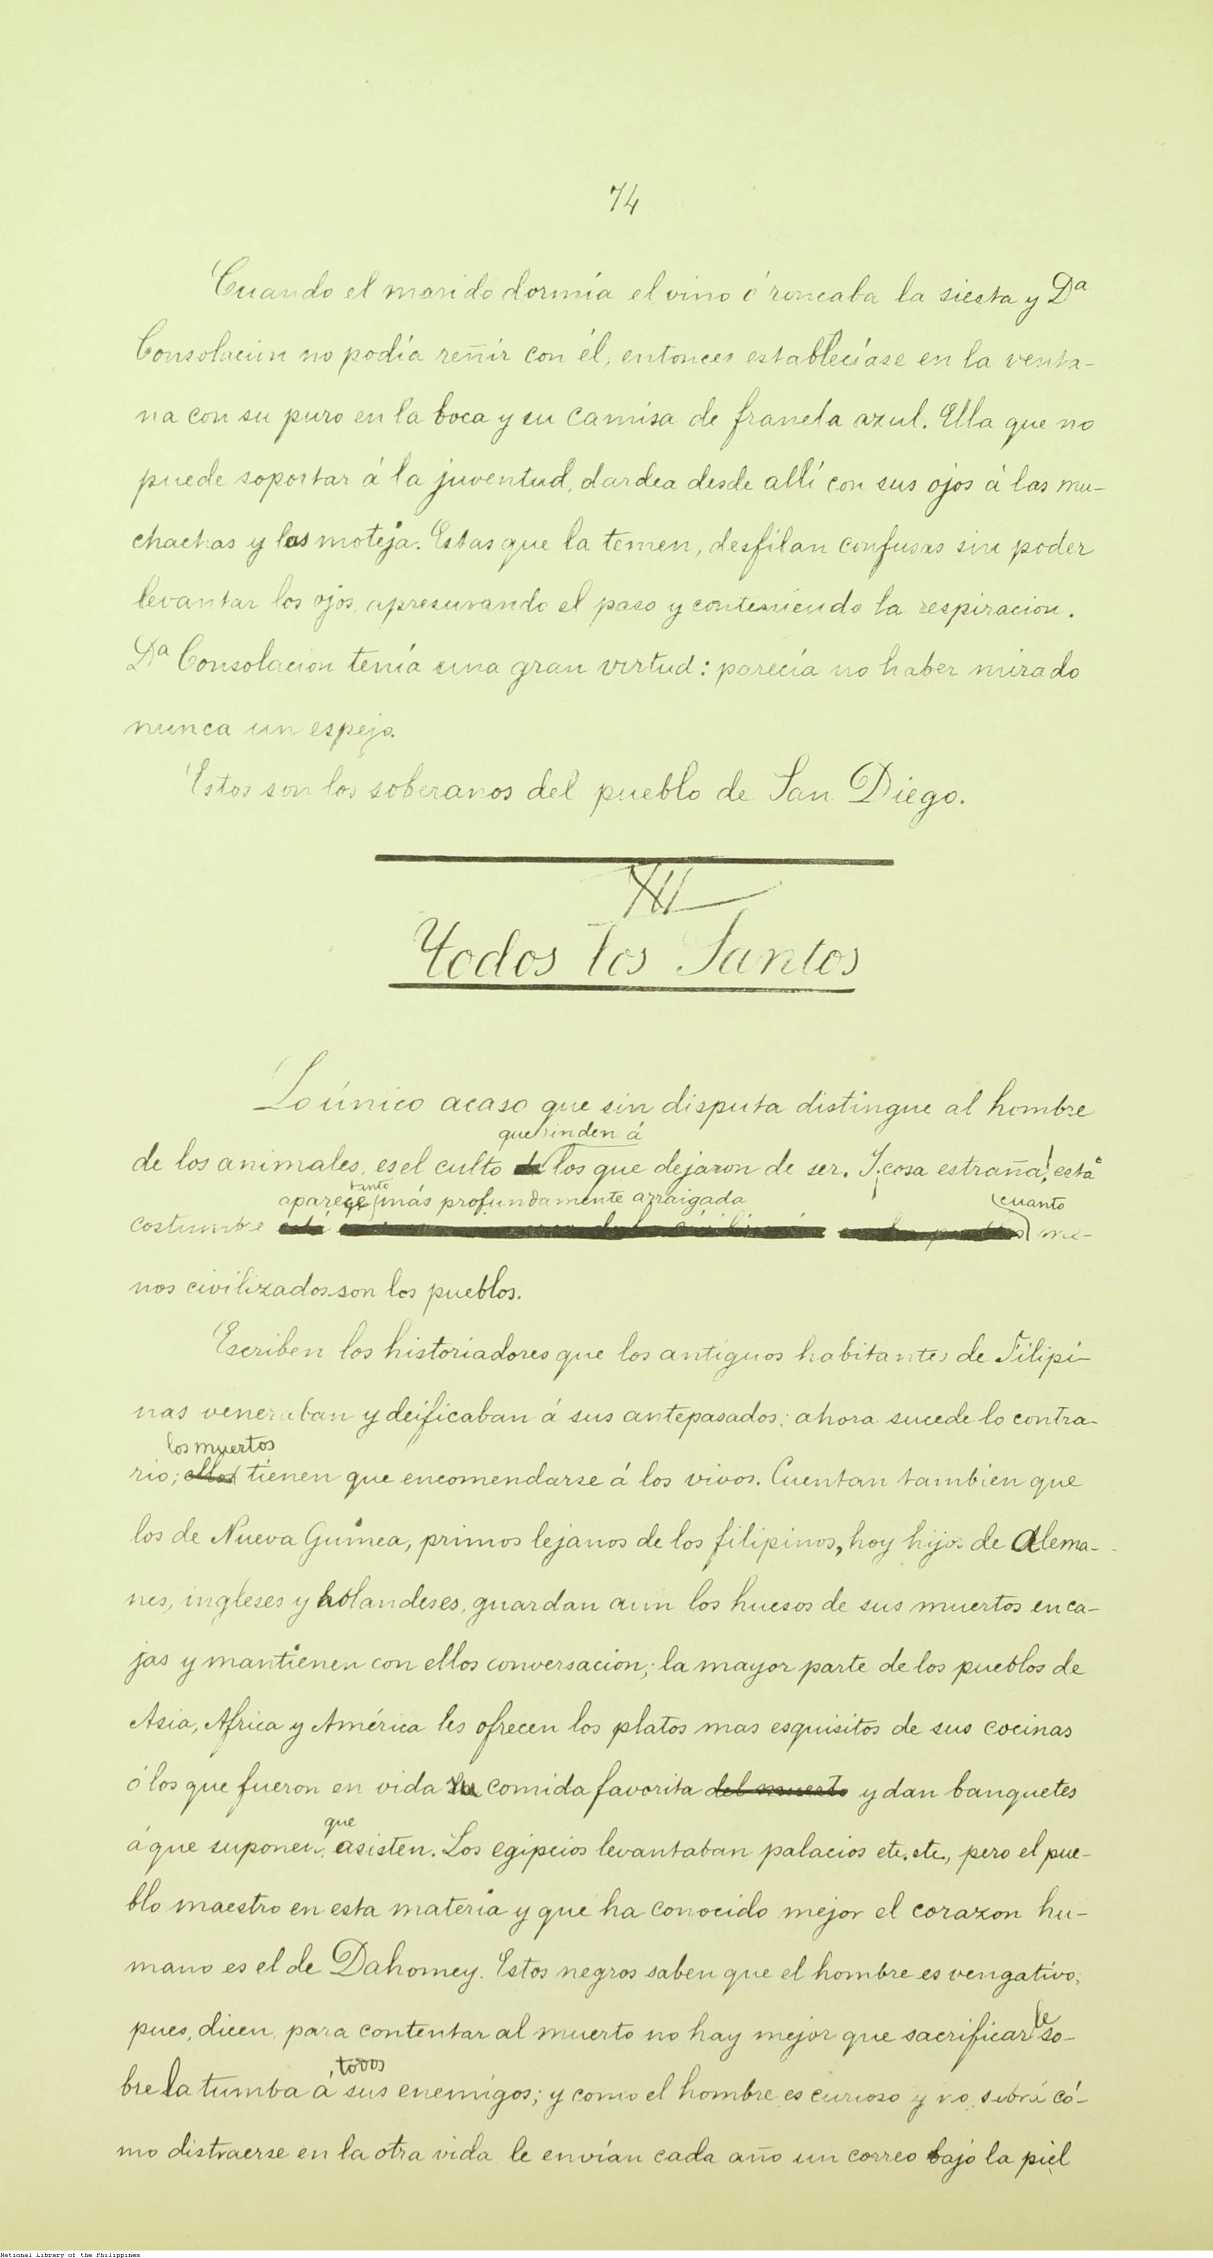 74
Cuando el marido dormía el vino ó roncaba la siesta y Dª
Consolacion no podía reñir con él, entonces establecíase en la venta-
na con su puro en la boca y su camisa de franela azul. Ella que no
puede soportar á la juventud, dardea desde allí con sus ojos á las mu-
chachas y las moteja. Estas que la temen, desfilan confusas sin poder
levantar los ojos, apresurando el paso y conteniendo la respiracion.
Dª Consolacion tenía una gran virtud: parecía no haber mirado
nunca un espejo.
Estos son los soberanos del pueblo de San Diego.
XII
Todos los Santos
Lo único acaso que sin disputa distingue al hombre
que rinden á
de los animales, es el culto de los que dejaron de ser. Y ¡cosa estraña! esta
aparece tanto más profundamente arraigada cuanto
costumbre está me-
nos civilizados son los pueblos.
Escriben los historiadores que los antiguos habitantes de Filipi-
nas veneraban y deificaban á sus antepasados; ahora sucede lo contra-
los muertos
rio; ellos tienen que encomendarse á los vivos. Cuentan tambien que
los de Nueva Guinea, primos lejanos de los filipinos, hoy hijos de Alema-
nes, ingleses y holandeses, guardan aun los huesos de sus muertos en ca-
jas y mantienen con ellos conversacion; la mayor parte de los pueblos de
Asia, Africa y América les ofrecen los platos mas esquisitos de sus cocinas
ó los que fueron en vida su comida favorita del muerto y dan banquetes
que
á que suponen asisten. Los egipcios levantaban palacios etc. etc., pero el pue-
blo maestro en esta materia y que ha conocido mejor el corazon hu-
mano es el de Dahomey. Estos negros saben que el hombre es vengativo,
le
pues, dicen, para contentar al muerto no hay mejor que sacrificar so-
todos
bre la tumba á sus enemigos; y como el hombre es curioso y no sabrá có-
mo distraerse en la otra vida le envían cada año un correo bajo la piel
National Library of the Philippines